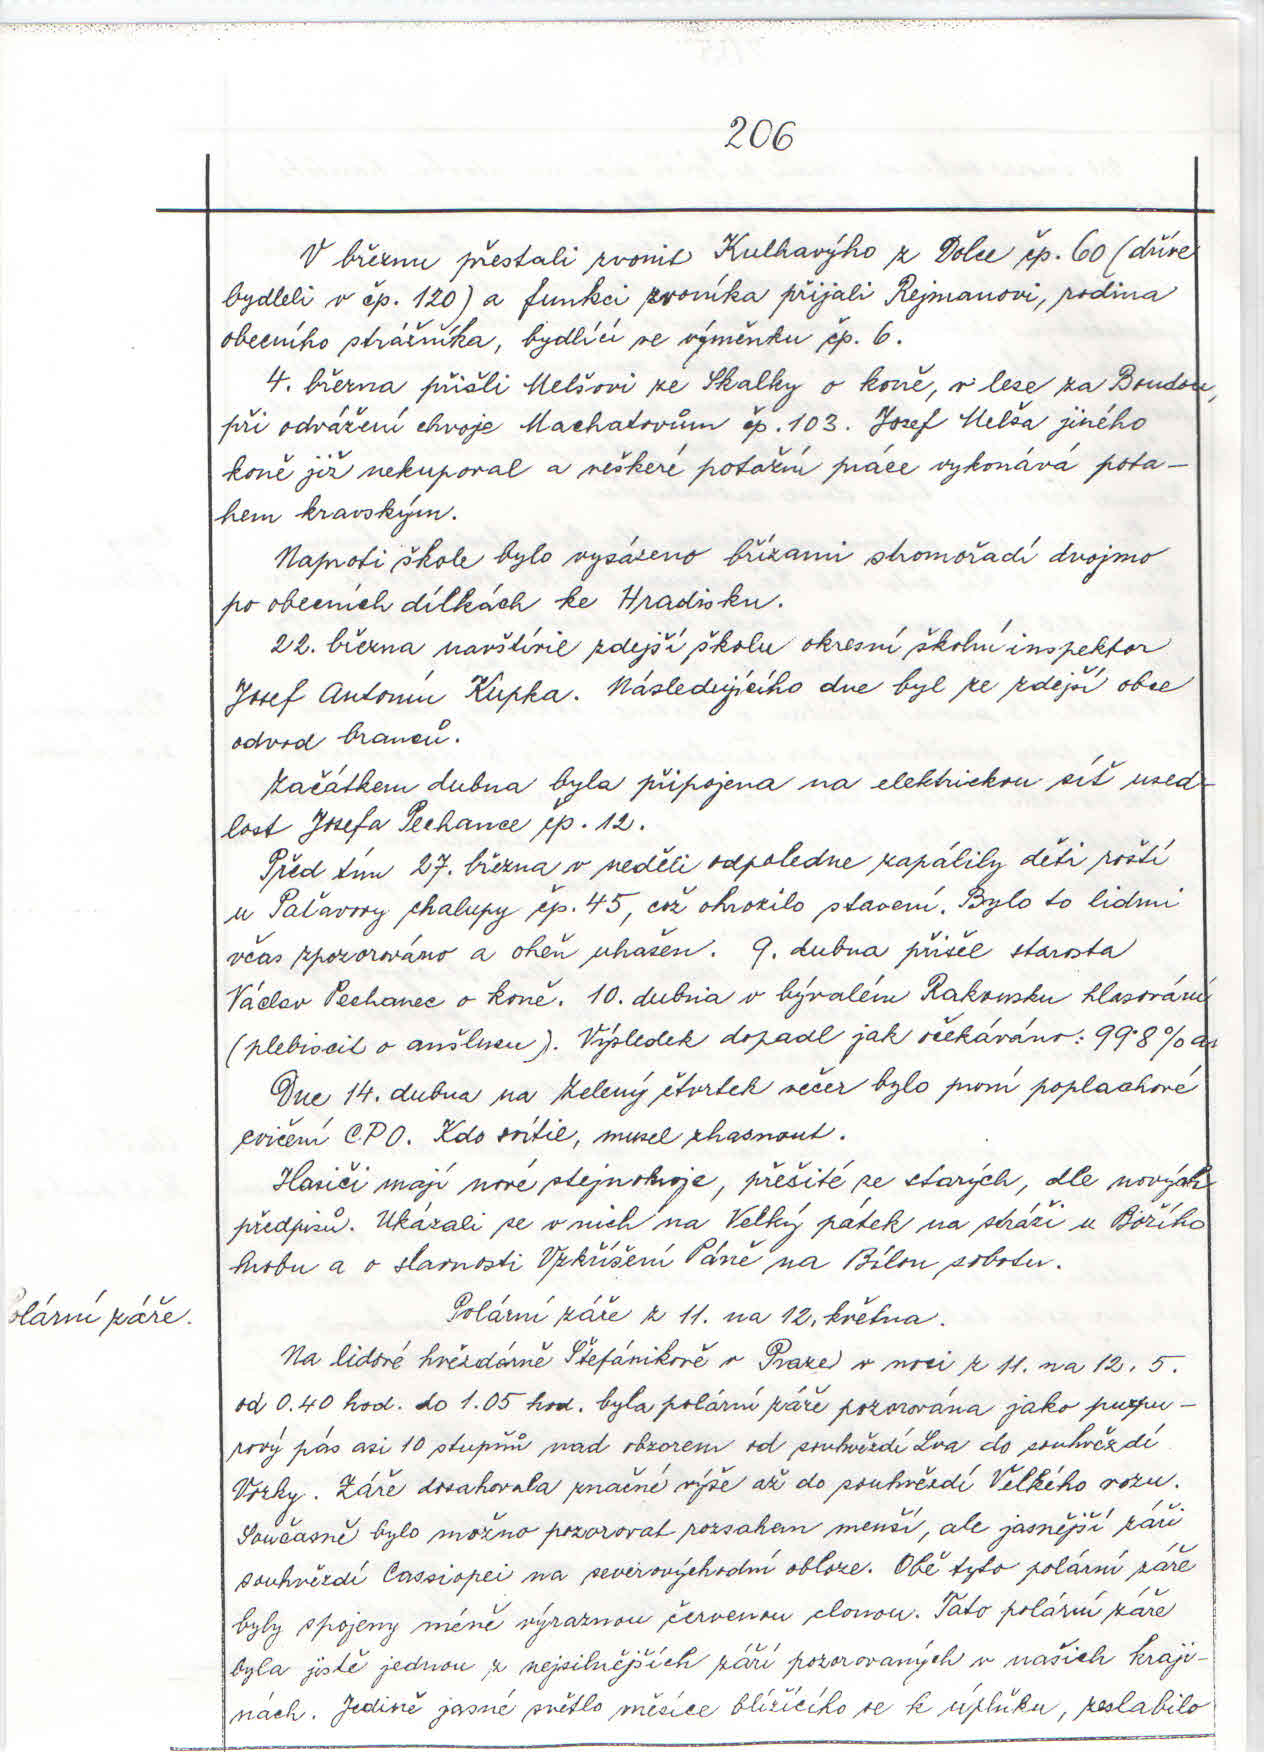 206
V březnu přestali zvonit Kulhavýho z Dolce čp. 60 (dříve
bydleli v čp. 120) a funkci zvoníka přijali Rejmanovi, rodina
obecního strážníka, bydlící ve výměnku čp. 6.
4. března přišli Melšovi ze Skalky o koně, v lese za Boudou,
při odvážení chvoje Machatovům čp. 103. Josef Melša jiného
koně již nekupoval a veškeré potažní práce vykonává pota-
hem kravským.
Naproti škole bylo vysázeno břízami stromořadí dvojmo
po obecních dílkách ke Hradisku.
22. března navštívil zdejší školu okresní školní inspektor
Josef Antonín Kupka. Následujícího dne byl ze zdejší obce
odvod branců.
Začátkem dubna byla připojena na elektrickou síť used-
lost Josefa Pechance čp. 12.
Před tím 27. března v neděli odpoledne zapálily děti roští
u Paťavovy chalupy čp. 45, což ohrozilo stavení. Bylo to lidmi
včas zpozorováno a oheň uhašen. 9. dubna přišel starosta
Václav Pechanec o koně. 10. dubna v bývalém Rakousku hlasování
(plebiscit o anšlusu). Výsledek dopadl jak očekáváno: 99·8 %
Dne 14. dubna na Zelený čtvrtek večer bylo první poplachové
cvičení C.P.O. Kdo svítil, musel zhasnout.
Hasiči mají nové stejnokroje, přešité ze starých, dle nových
předpisů. Ukázali se v nich na Velký pátek na stráži u Božího
hrobu a o slavnosti Vzkříšení Páně na Bílou sobotu.
Polární záře.
Polární záře z 11. na 12. května.
Na lidové hvězdárně Štefánikově v Praze v noci z 11. na 12. 5.
od 0.40 hod. do 1.05 hod. byla polární záře pozorována jako purpu-
rový pás asi 10 stupňů nad obzorem od souhvězdí Lva do souhvězdí
Vozky. Záře dosahovala značné výše až do souhvězdí Velkého vozu.
Současně bylo možno pozorovat rozsahem menší, ale jasnější záři
souhvězdí Cassiopei na severovýchodní obloze. Obě tyto polární záře
byly spojeny méně výraznou červenou clonou. Tato polární záře
byla jistě jednou z nejsilnějších září pozorovaných v našich kraji-
nách. Jedině jasné světlo měsíce blížícího se k úplňku, zeslabilo